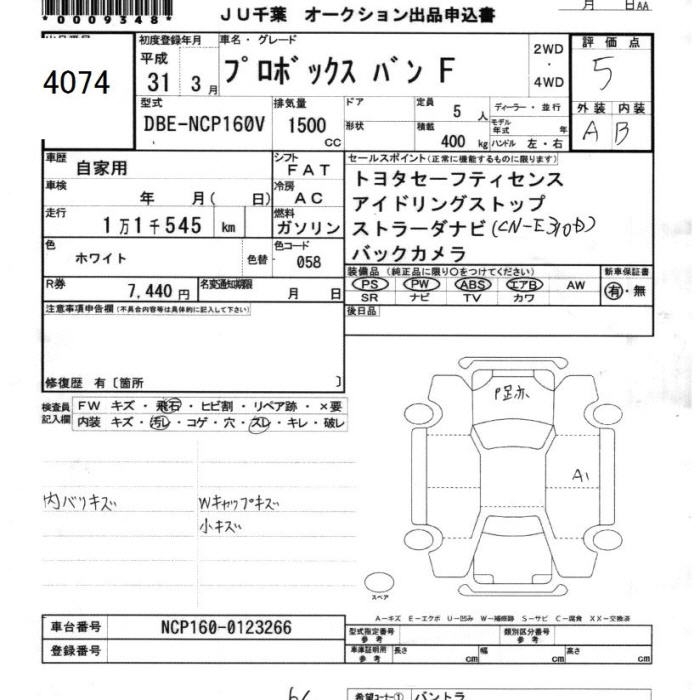 *0009348*
JU千葉 オークション出品申込書
月 日AA
4074
初度登録年月
平成
31 3月
車名・グレード
プロボックス バン F
2WD
・
4WD
評価点
5
型式
DBE-NCP160V
排気量
1500
CC
ドア
形状
定員 5 人
積載 400 kg
ディーラー・並行
モデル年式 年
ハンドル 左・右
外装 内装
A B
車歴
自家用
シフト
FAT
セールスポイント(正常に機能するものに限ります)
トヨタセーフティセンス
アイドリングストップ
ストラーダナビ(CN-E310D)
バックカメラ
車検
年 月( 日)
冷房
AC
走行
1万1千545 km
燃料
ガソリン
色
ホワイト
色替
色コード
058
装備品(純正品に限り○をつけてください)
新車保証書
PS PW ABS エアB AW
SR ナビ TV カワ
有・無
R券
7,440円
名変通知期限
月 日
後日品
注意事項申告欄(不具合内容等は具体的に記入して下さい)
修復歴 有〔箇所 〕
検査員記入欄
FW キズ・飛石・ヒビ割・リペア跡・×要
内装 キズ・汚レ・コゲ・穴・スレ・キレ・破レ
内バリキズ
Wキャップキズ
小キズ
A1
スペア
A-キズ E-エクボ U-凹み W-補修跡 S-サビ C-腐食 XX-交換済
車台番号
NCP160-0123266
登録番号
型式指定番号
参考
類別区分番号
参考
車庫証明用
参考
長さ cm
幅 cm
高さ cm
希望コーナー①
バントラ